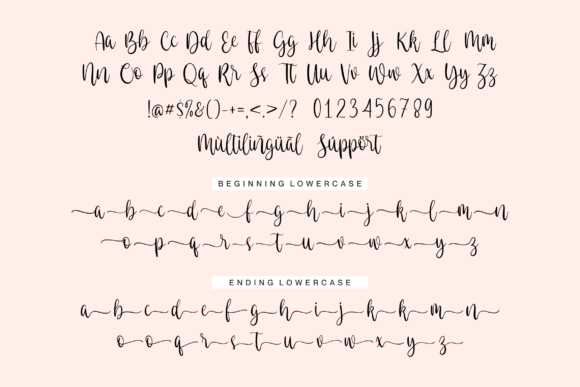 Aa Bb Cc Dd Ee Ff Gg Hh Ii Jj Kk Ll Mm
Nn Oo Pp Qq Rr Ss Tt Uu Vv Ww Xx Yy Zz
!@#$%&()-+=,<.>/? 0123456789
Mùltilïñgüãl Súppört
BEGINNING LOWERCASE
a b c d e f g h i j k l m n
o p q r s t u v w x y z
ENDING LOWERCASE
a b c d e f g h i j k k m n
o o q r s t u v w x y z